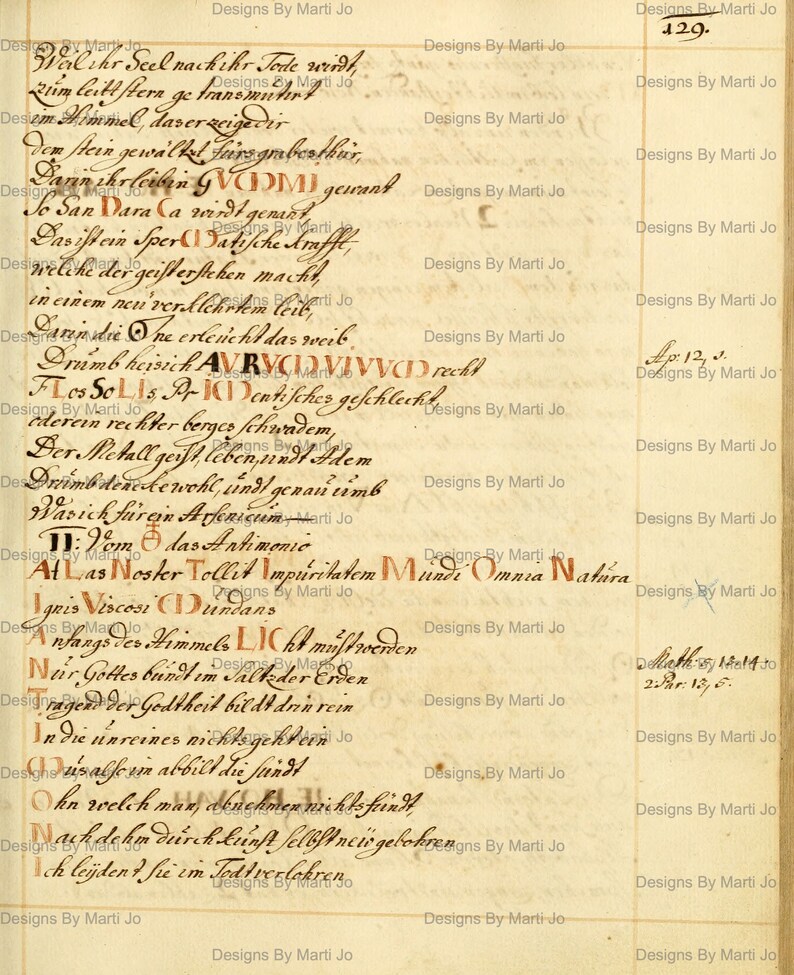 129.
Weil ihr Seel nach ihr Tode wirdt,
zum leittstern getransmutirt
im Himmel, das er zeige dir
dem stein gewältzt fürs grabes thür,
Darin ihr leib in GVCIDMI gewant
So SanDaraCa wirdt genant,
Das ist ein SperCIDatische Krafft,
welche der geist erstehen macht,
in einem neu verklehrtem leib,
Darin die ☉ne erleücht das weib
Drumb heis ich AVRVCIDVIVVCID recht
Ap: 12, 1.
FLos SoLIs, PrICIDentisches geschlecht,
oder ein rechter berges schwadem,
Der Metall geist, leben, undt Adem
Drumb dencke wohl, undt genau umb
Was ich für ein Arsenicum
II: Vom ♁ das Antimonio
AtLas Noster Tollit Impuritatem Mundi Omnia Natura
Ignis Viscosi CIDundans
Anfangs des Himmels LICht must werden
Nur Gottes bundt im Saltz der Erden
Math: 5, 13. 14.
2 Par: 13, 5.
Tragend der Godtheit bildt drin rein
In die unreines nichts geht ein
CIDus also im abbilt die sündt
Ohn welch man, abnehmen nichts fündt,
Nach dehm durch kunst selbst neü gebohren
Ich leijden t sie im Todt verlohren
Designs By Marti Jo